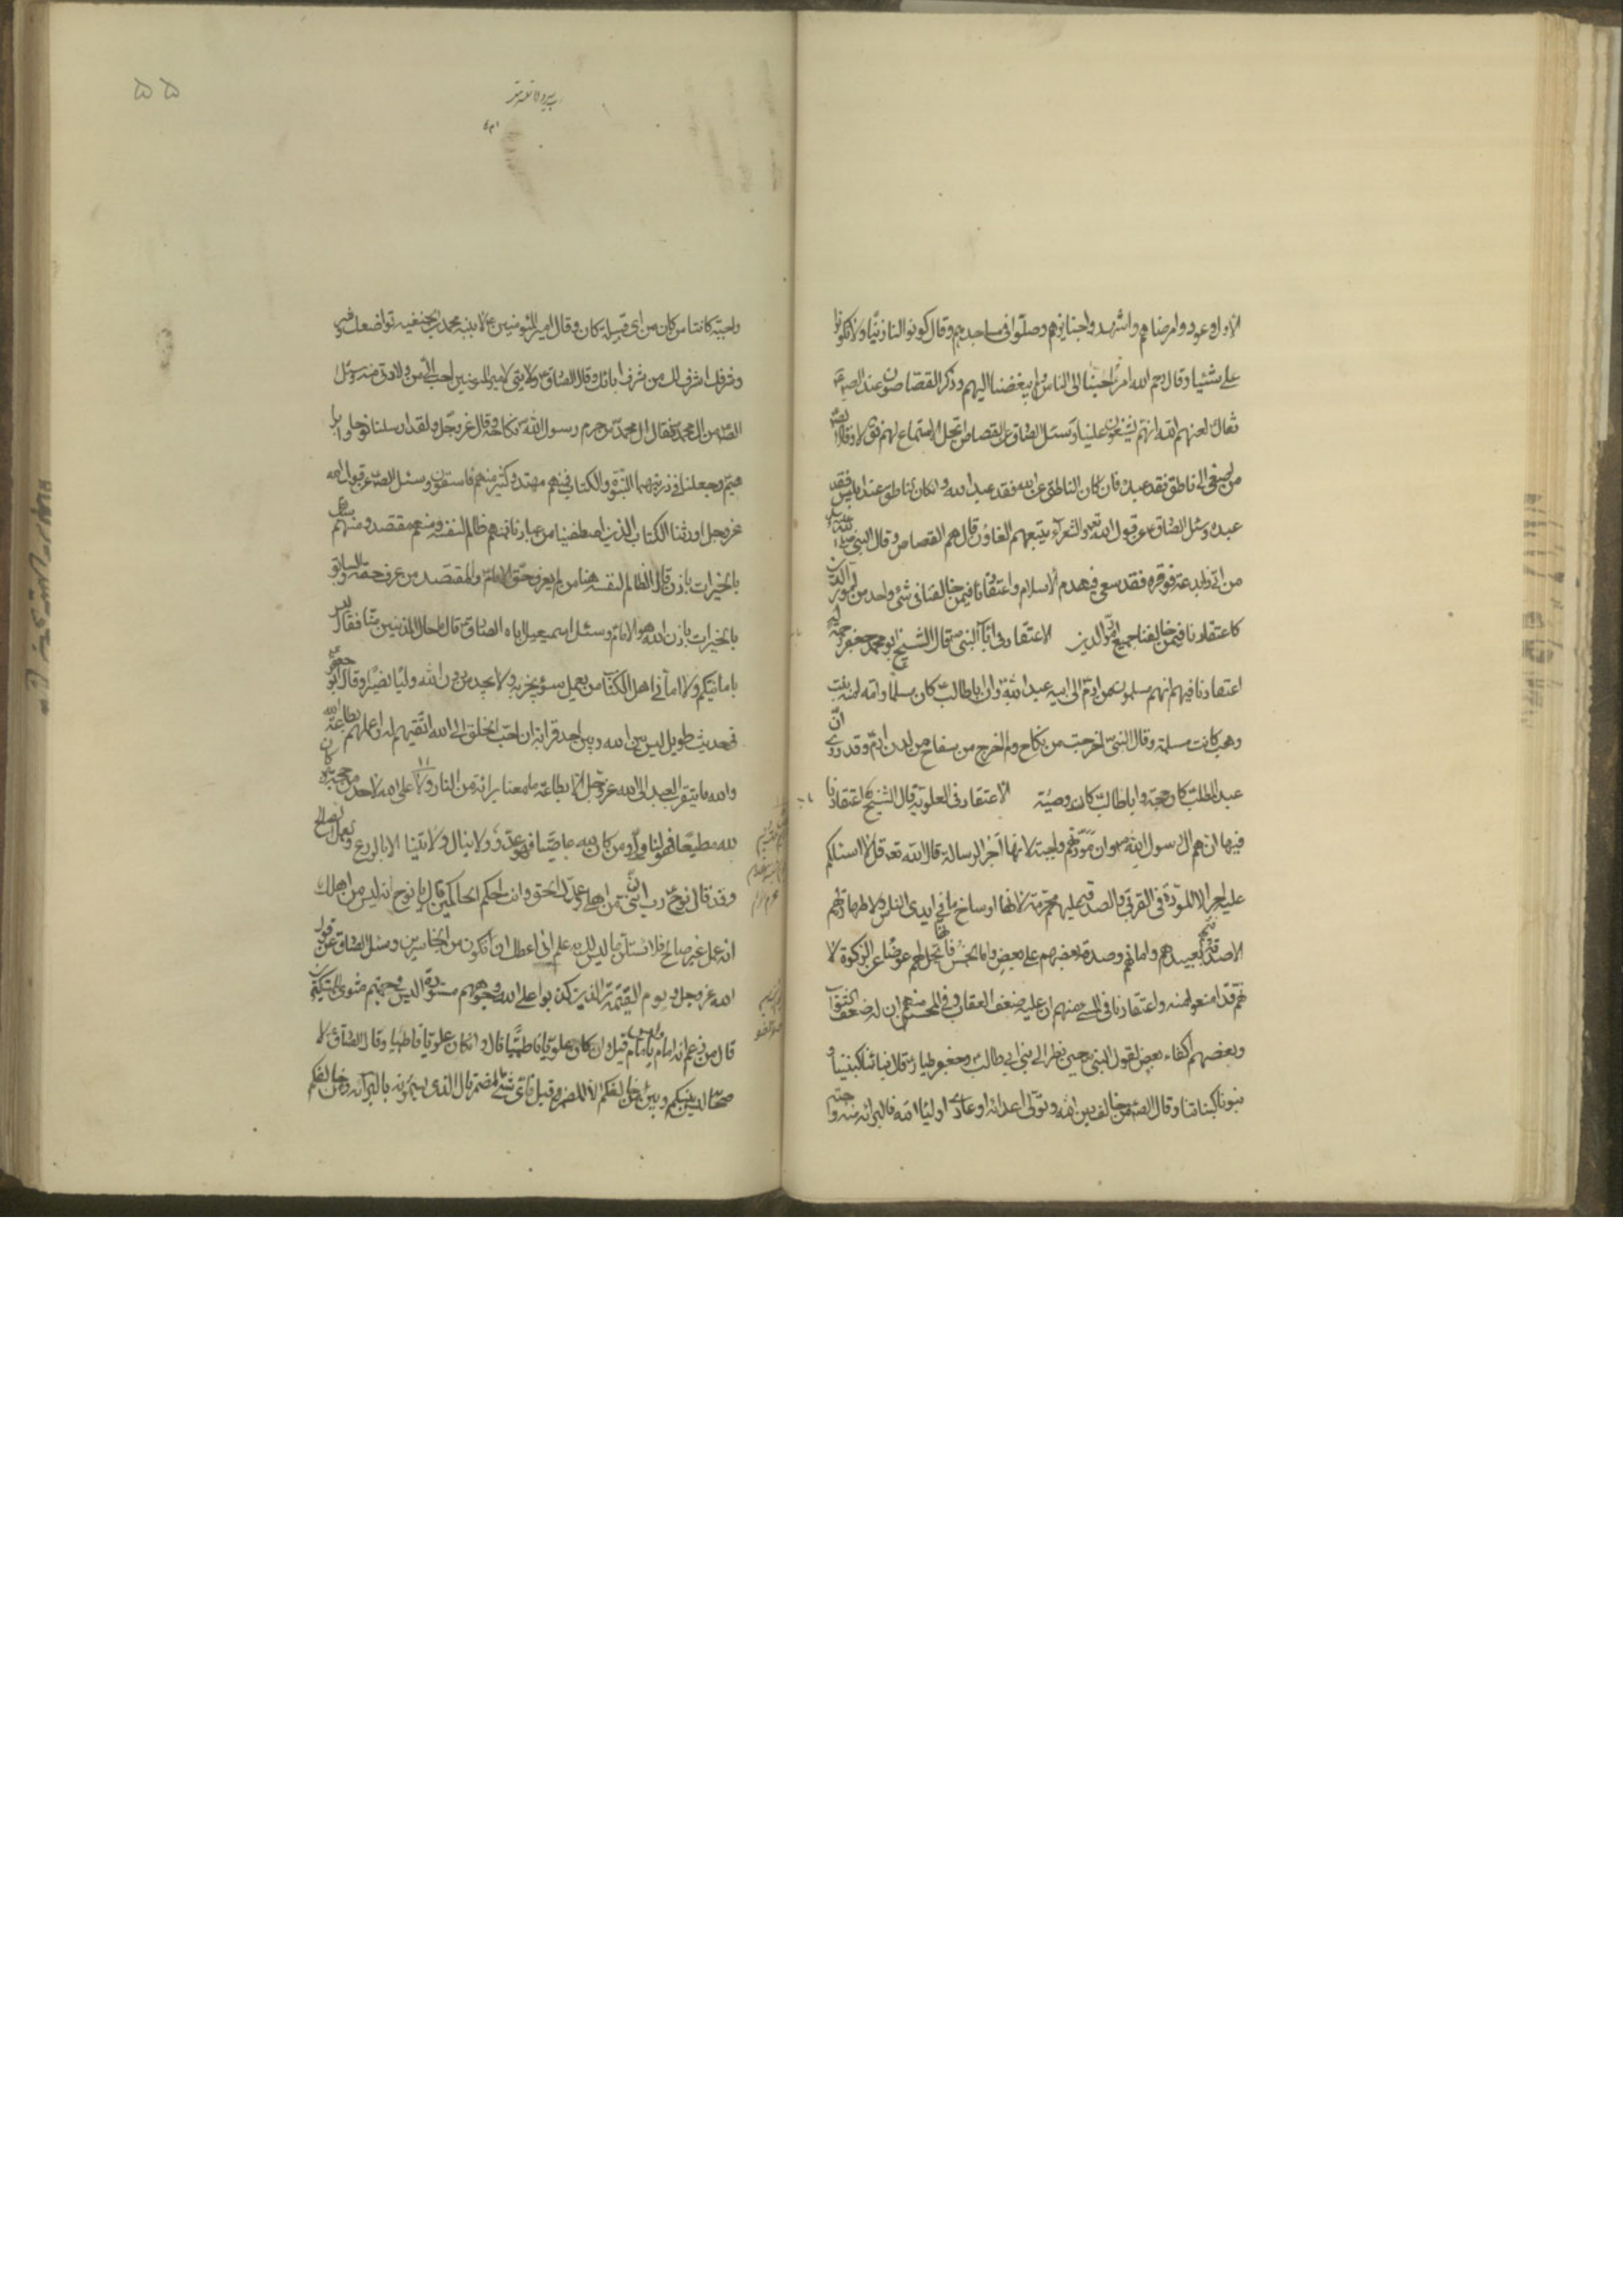 الاداء وعودوا مرضاهم واشهدوا جنايزهم وصلّوا فى مساجدهم وقال كونوا لنا زينًا ولا تكونوا
علينا شينا وقال رحم الله امرًا حبّبنا الى الناس ولم يبغضنا اليهم وذكر القصّاصون عند الصادق
فقال لعنهم الله انهم يشنعون علينا وسئل الصادق عن القصاص أيحل الاستماع لهم فقال لا وقال
من اصغى الى ناطق فقد عبده فان كان الناطق عن الله فقد عبد الله وان كان الناطق عن ابليس فقد
عبده وسئل الصادق عن قول الله تعه والشعراء يتبعهم الغاون قال هم القصاص وقال النبى
من اتى ذا بدعة فوقره فقد سعى فى هدم الاسلام واعتقادنا فيمن خالفنا فى شئ واحد من امور الدين
كاعتقادنا فيمن خالفنا جميع امور الدين الاعتقاد فى اباء النبى قال الشيخ ابو جعفر رحمه الله
اعتقادنا فيهم انهم مسلمون من ادم الى ابيه عبد الله وان ابا طالب كان مسلما وامه امنه بنت
وهب كانت مسلمة وقال النبى اخرجت من نكاح ولم اخرج من سفاح من لدن ادم وقد روى انّ
عبد المطلب كان حجة وابا طالب كان وصيّه الاعتقاد فى العلوية قال الشيخ اعتقادنا
فيها انهم ال رسول الله وان مودّتهم واجبة لانها اجر الرسالة قال الله تعه قل لا اسئلكم
عليه اجرا الا المودّة فى القربى والصدقة عليهم محرّمة لانها اوساخ ما فى ايدى الناس وطهارة لهم
الا صدقتهم لعبيدهم وامائهم وصدقة بعضهم على بعض واما الخمس فانها تحل لهم عوضا عن الزكوة لا
نهم قد منعوا منه واعتقادنا فى المسئ منهم ان عليه ضعف العقاب وفى المحسن منهم ان له ضعف الثواب
وبعضهم اكفاء بعض لقول النبى حين نظر الى بنى ابى طالب وجعفر طيار قال بناتنا لبنينا و
بنونا لبناتنا وقال الصادق من خالف دين الله وتولى اعداء الله او عادى اولياء الله فالبرائة منه واجبة
واجبة كائنا من كان من اى قبيلة كان وقال امير المؤمنين ع لابنه محمد بن الحنفيه تواضعك فى
شرفك اشرف لك من شرف ابائك وقال الصادق ولايتى لامير المؤمنين احب الىّ من ولادتى منه وسئل
الصادق من ال محمد فقال ال محمد من حرم رسول الله نكاحه وقال عز وجل ولقد ارسلنا نوحا وابرا
هيم وجعلنا فى ذريتهما النبوة والكتاب فمنهم مهتد وكثير منهم فاسقون وسئل الصادق عن قول الله
عز وجل اورثنا الكتاب الذين اصطفينا من عبادنا فمنهم ظالم لنفسه ومنهم مقتصد ومنهم سابق
بالخيرات باذن قال الظالم لنفسه هنا من لم يعرف حق الامام والمقتصد من عرف حقه والسابق
بالخيرات باذن الله هو الامام وسئل اسمعيل اباه الصادق قال ما حال المذنبين منا فقال ليس
بامانيكم ولا امانى اهل الكتاب من يعمل سوء يجز به ولا يجد من دون الله وليا ولا نصيرا وقال ابو جعفر
فى حديث طويل ليس بين الله وبين احد قرابة ان احب الخلق الى الله اتقيهم له واعملهم بطاعة الله
والله ما يتقرب العبد الى الله عز وجل الا بطاعته ما معنا برائة من النار ولا على الله لاحد من حجة من كان
لله مطيعا فهو لنا ولى ومن كان لله عاصيا فهو لنا عدوّ ولا ينال ولايتنا الا بالورع والعمل الصالح
وقد قال نوح رب ان ابنى من اهلى وان وعدك الحق وانت احكم الحاكمين قال يا نوح انه ليس من اهلك
انه عمل غير صالح فلا تسئلن ما ليس لك به علم انى اعظك ان تكون من الجاهلين وسئل الصادق عن قول
الله عز وجل ويوم القيمة ترى الذين كذبوا على الله وجوههم مسودّة اليس فى جهنم مثوى للمتكبرين
قال من زعم انه امام وليس بامام قيل وان كان علويا فاطميا قال وان كان علويا فاطميا وقال الصادق لا
صحابه ليس بينكم وبين من خالفكم الا المضمر قيل فاى شئ المضمر قال الذى يسمونه بالبرائة ومن خالفكم
۵۵